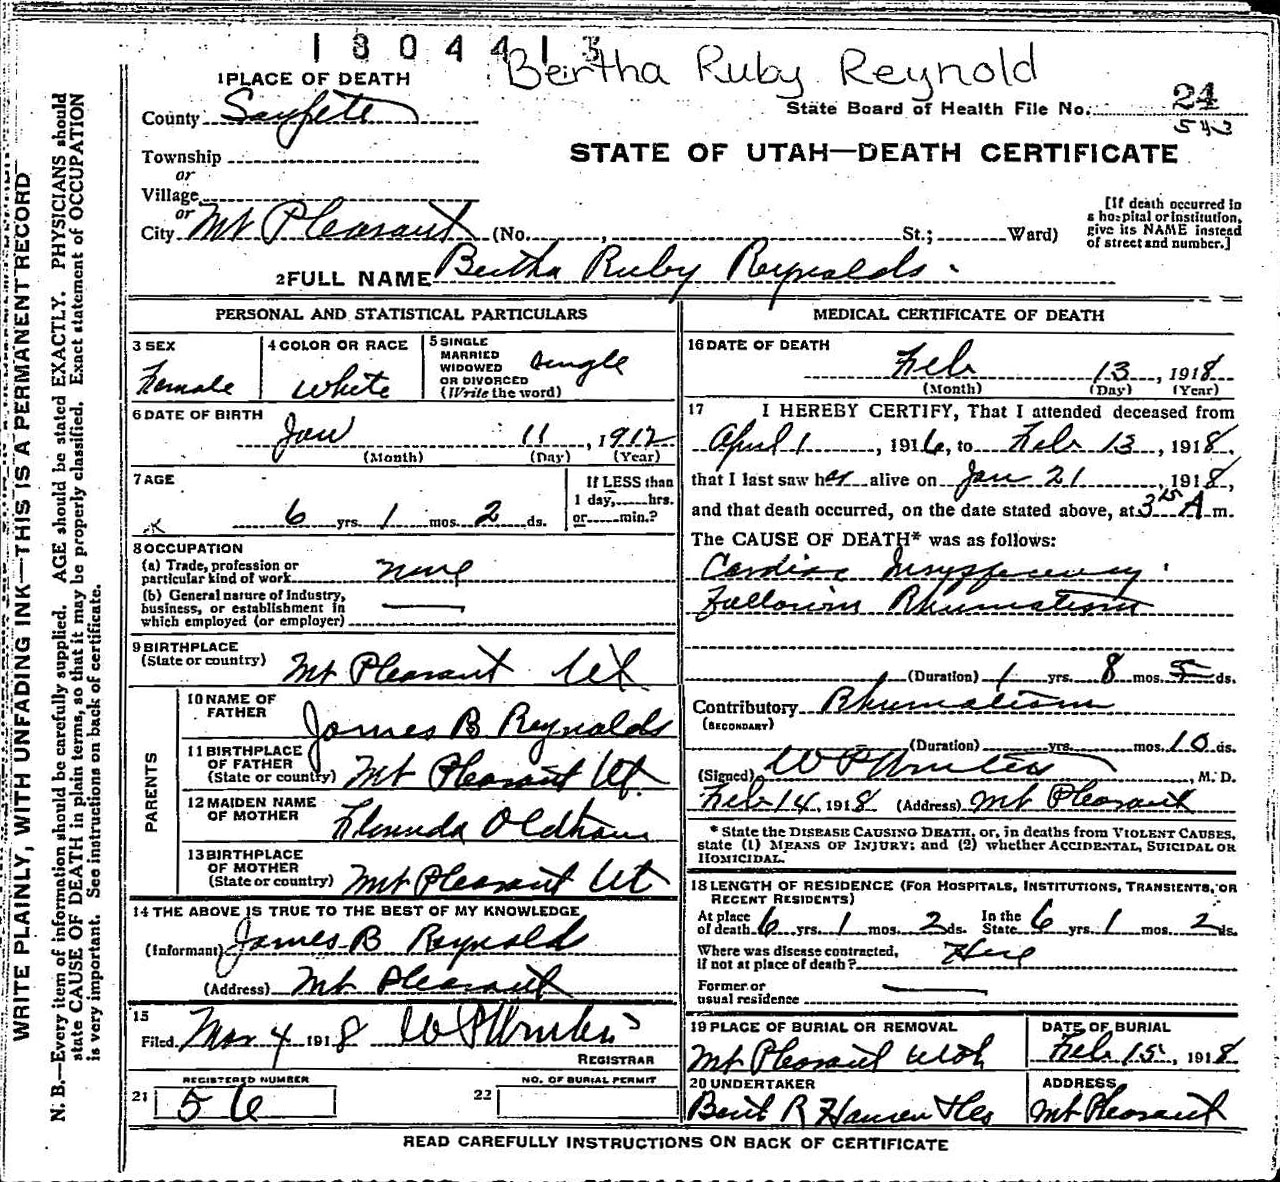 1304413
Bertha Ruby Reynold
1 PLACE OF DEATH
State Board of Health File No. 24
543
County Sanpete
STATE OF UTAH—DEATH CERTIFICATE
Township
or
Village
or
City Mt Pleasant (No. , St.; Ward)
[If death occurred in a hospital or institution, give its NAME instead of street and number.]
2 FULL NAME Bertha Ruby Reynolds
PERSONAL AND STATISTICAL PARTICULARS
3 SEX
Female
4 COLOR OR RACE
White
5 SINGLE MARRIED WIDOWED OR DIVORCED (Write the word)
Single
6 DATE OF BIRTH
Jan 11, 1912
(Month) (Day) (Year)
7 AGE
6 yrs. 1 mos. 2 ds.
If LESS than 1 day, hrs. or min.?
8 OCCUPATION
(a) Trade, profession or particular kind of work none
(b) General nature of industry, business, or establishment in which employed (or employer)
9 BIRTHPLACE
(State or country) Mt Pleasant Ut
PARENTS
10 NAME OF FATHER James B Reynolds
11 BIRTHPLACE OF FATHER (State or country) Mt Pleasant Ut.
12 MAIDEN NAME OF MOTHER Oldham
13 BIRTHPLACE OF MOTHER (State or country) Mt Pleasant Ut
14 THE ABOVE IS TRUE TO THE BEST OF MY KNOWLEDGE
(Informant) James B Reynolds
(Address) Mt Pleasant
15
Filed Mar 4 1918
REGISTRAR
REGISTERED NUMBER
21 56
NO. OF BURIAL PERMIT
22
MEDICAL CERTIFICATE OF DEATH
16 DATE OF DEATH
Feb 13, 1918
(Month) (Day) (Year)
17 I HEREBY CERTIFY, That I attended deceased from
April 1, 1916, to Feb 13, 1918,
that I last saw her alive on Jan 21, 1918,
and that death occurred, on the date stated above, at 3 15 A m.
The CAUSE OF DEATH* was as follows:
Cardiac Insufficiency
Following Rhumatism
(Duration) 1 yrs. 8 mos. 5 ds.
Contributory Rhumatism
(SECONDARY)
(Duration) yrs. mos. 10 ds.
(Signed) , M. D.
Feb 14, 1918 (Address) Mt Pleasant
* State the DISEASE CAUSING DEATH, or, in deaths from VIOLENT CAUSES,
state (1) MEANS OF INJURY; and (2) whether ACCIDENTAL, SUICIDAL OR
HOMICIDAL.
18 LENGTH OF RESIDENCE (FOR HOSPITALS, INSTITUTIONS, TRANSIENTS, OR
RECENT RESIDENTS)
At place of death 6 yrs. 1 mos. 2 ds. In the State 6 yrs. 1 mos. 2 ds.
Where was disease contracted,
if not at place of death? Here
Former or
usual residence
19 PLACE OF BURIAL OR REMOVAL
Mt Pleasant Utah
DATE OF BURIAL
Feb 15, 1918
20 UNDERTAKER
R Hansen
ADDRESS
Mt Pleasant
READ CAREFULLY INSTRUCTIONS ON BACK OF CERTIFICATE
WRITE PLAINLY, WITH UNFADING INK—THIS IS A PERMANENT RECORD
N. B.—Every item of information should be carefully supplied. AGE should be stated EXACTLY. PHYSICIANS should
state CAUSE OF DEATH in plain terms, so that it may be properly classified. Exact statement of OCCUPATION
is very important. See instructions on back of certificate.